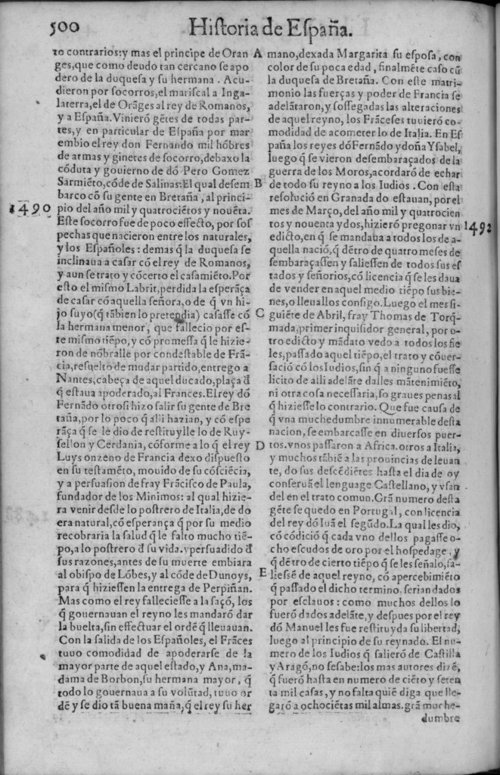 500
Historia de España.
to contrarios: y mas el principe de Oran
ges, que como deudo tan cercano se apo
dero de la duquesa y su hermana. Acu-
dieron por socorros, el mariscal a Inga-
laterra, el de Orãges al rey de Romanos,
y a España. Vinierõ gẽtes de todas par-
tes, y en particular de España por mar
embio el rey don Fernando mil hõbres
de armas y ginetes de socorro, debaxo la
cõduta y gouierno de dõ Pero Gomez
Sarmiẽto, cõde de Salinas: El qual desem
barco cõ su gente en Bretaña, al princi-
1490
pio del año mil y quatrociẽtos y nouẽta.
Este socorro fue de poco effecto, por sos
pechas que nacieron entre los naturales,
y los Españoles: demas q̃ la duquesa se
inclinaua a casar cõ el rey de Romanos,
y aun se trato y cõcerto el casamiẽto. Por
esto el mismo Labrit, perdida la esperãça
de casar cõ aquella señora, o de q̃ vn hi-
jo suyo (q̃ tãbien lo pretendia) casasse cõ
la hermana menor, que fallecio por es-
te mismo tiẽpo, y cõ promessa q̃ le hizie-
ron de nõbralle por condestable de Frã-
cia, resuelto de mudar partido, entrego a
Nantes, cabeça de aquel ducado, plaça ď
q̃ estaua apoderado, al Frances. El rey dõ
Fernãdo otrosi hizo salir su gente de Bre
taña, por lo poco q̃ alli hazian, y cõ espe
rãça q̃ se le dio de restituylle lo de Ruy-
sellon y Cerdania, cõforme a lo q̃ el rey
Luys onzeno de Francia dexo dispuesto
en su testamẽto, mouido de su cõsciẽcia,
y a persuasion de fray Frãcisco de Paula,
fundador de los Minimos: al qual hizie-
ra venir desde lo postrero de Italia, de do
era natural, cõ esperança q̃ por su medio
recobraria la salud q̃ le falto mucho tiẽ-
po, a lo postrero ď su vida. y persuadido ď
sus razones, antes de su muerte embiara
al obispo de Lõbes, y al cõde de Dunoys,
para q̃ hiziessen la entrega de Perpiñan.
Mas como el rey falleciesse a la saçõ, los
q̃ gouernauan el reyno les mandarõ dar
la buelta, sin effectuar el ordẽ q̃ lleuauan.
Con la salida de los Españoles, el Frãces
tuuo comodidad de apoderarse de la
mayor parte de aquel estado, y Ana, ma-
dama de Borbon, su hermana mayor, q̃
todo lo gouernaua a su volũtad, tuuo or
dẽ y se dio tã buena maña, q̃ el rey su her
A
B
C
D
E
mano, dexada Margarita su esposa, con
color de su poca edad, finalmẽte caso cũ
la duquesa de Bretaña. Con este matri-
monio las fuerças y poder de Francia se
adelãtaron, y sossegadas las alteraciones
de aquel reyno, los Frãceses tuuierõ co-
modidad de acometer lo de Italia. En Es
paña los reyes dõ Fernãdo y doña Ysabel,
luego q̃ se vieron desembaraçados de la
guerra de los Moros, acordarõ de echar
de todo su reyno a los Iudios. Con esta
resoluciõ en Granada do estauan, por el
mes de Março, del año mil y quatrocien
tos y nouenta y dos, hizierõ pregonar vn
1492
edicto, en q̃ se mandaba a todos los de a
quella naciõ, q̃ dẽtro de quatro meses de
sembaraçassen y saliessen de todos sus es
tados y señorios, cõ licencia q̃ se les daua
de vender en aquel medio tiẽpo sus bie-
nes, o lleuallos consigo. Luego el mes si-
guiẽte de Abril, fray Thomas de Torq̃-
mada, primer inquisidor general, por o-
tro edicto y mãdato vedo a todos los fie
les, passado aquel tiẽpo, el trato y cõuer-
saciõ cõ los Iudios, sin q̃ a ninguno fuesse
licito de alli adelãte dalles mãtenimiẽto,
ni otra cosa necessaria, so graues penas al
q̃ hiziesse lo contrario. Que fue causa de
q̃ vna muchedumbre innumerable desta
nacion, se embarcasse en diuersos puer-
tos. vnos passaron a Africa. otros a Italia,
y muchos tãbiẽ a las prouincias de leuan
te, do sus descẽdiẽtes hasta el dia de oy
conseruã el lenguage Castellano, y vsan
del en el trato comun. Grã numero desta
gẽte se quedo en Portugal, con licencia
del rey dõ Iuã el segũdo. La qual les dio,
cõ cõdiciõ q̃ cada vno dellos pagasse o-
cho escudos de oro por el hospedage. y
q̃ dẽtro de cierto tiẽpo q̃ se les señalo, sa-
liesse de aquel reyno, cõ apercebimiẽto
q̃ passado el dicho termino. serian dados
por esclauos: como muchos dellos lo
fuerõ dados adelãte, y despues por el rey
dõ Manuel les fue restituyda su libertad,
luego al principio de su reynado. El nu-
mero de los Iudios q̃ salierõ de Castilla
y Aragõ, no se sabe: los mas autores dizẽ,
q̃ fuerõ hasta en numero de ciẽto y seten
ta mil casas, y no falta quiẽ diga que lle-
garõ a ochociẽtas mil almas. grã muche-
dumbre